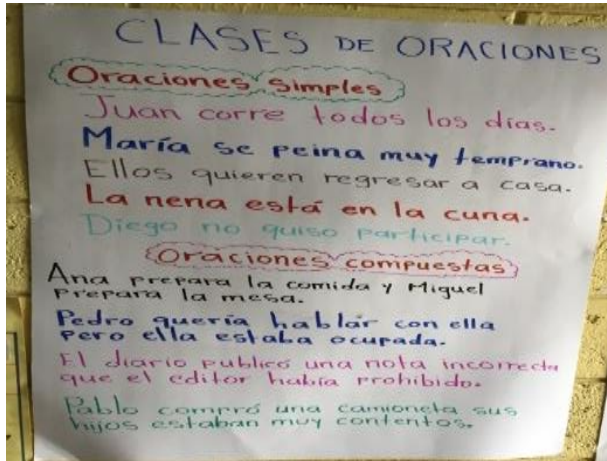 CLASES DE ORACIONES
Oraciones simples
Juan corre todos los días.
María se peina muy temprano.
Ellos quieren regresar a casa.
La nena está en la cuna.
Diego no quiso participar.
Oraciones compuestas
Ana prepara la comida y Miguel
prepara la mesa.
Pedro quería hablar con ella
pero ella estaba ocupada.
El diario publicó una nota incorrecta
que el editor había prohibido.
Pablo compró una camioneta sus
hijos estaban muy contentos.